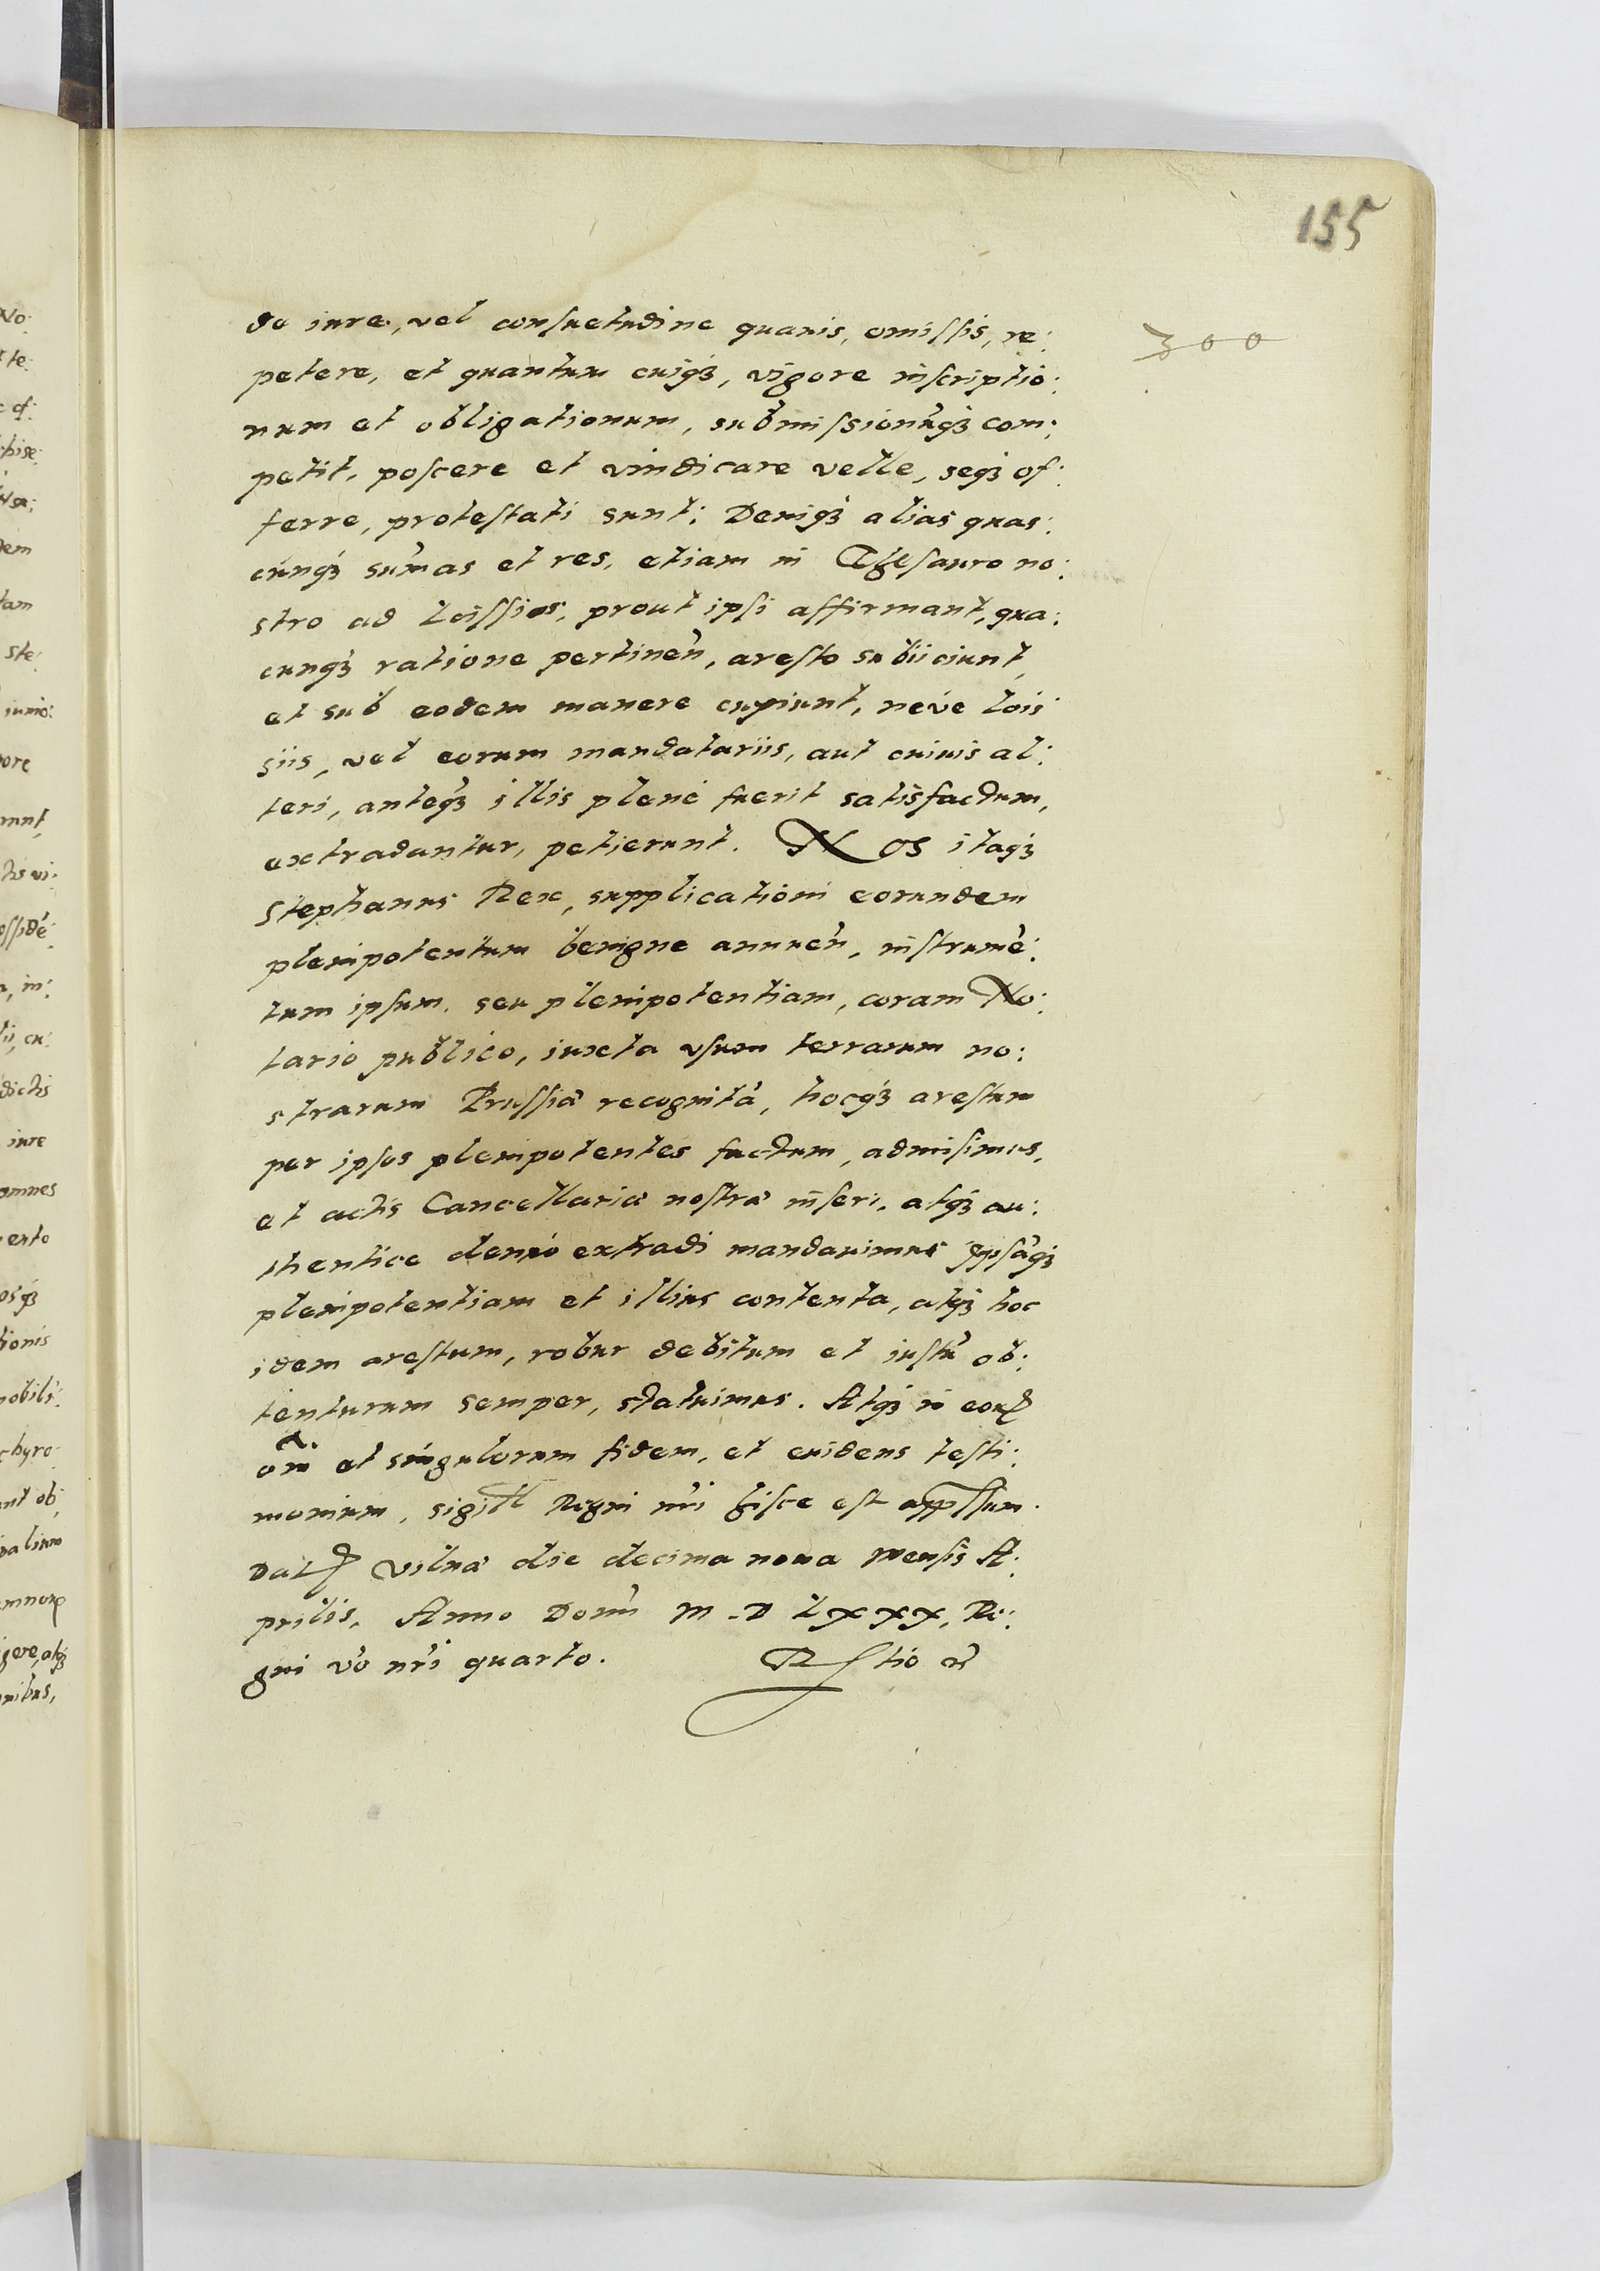 155
300
de iure, vel consuetudine quauis, omissis, re:
petere, et quantum cuiqȝ, vigore inscriptio:
num et obligationum, submissionūqȝ com:
petit, poscere et vindicare velle, seqȝ of:
ferre, protestati sunt: Deniqȝ alias quas:
cunqȝ sum̄as et res, etiam in Thesauro no:
stro ad Loissios, prout ipsi affirmant, qua:
cunqȝ ratione pertineñ, aresto subiiciunt,
et sub eodem manere cupiunt, neve Lois
siis, vel eorum mandatariis, aut cuiuis al:
teri, anteqȝ illis plene fuerit satisfactum,
extradantur, petierunt. Nos itaqȝ
Stephanus Rex, supplicationi eorundem
plenipotentum benigne annueñ, instrumē:
tum ipsum, seu plenipotentiam, coram No:
tario publico, iuxta vsum terrarum no:
strarum Prussiæ recognitā, hocqȝ arestum
per ipsos plenipotentes factum, admisimus,
et actis Cancellariæ nostræ inseri, atqȝ au:
thentice denuo extradi mandauimus ipsāqȝ
plenipotentiam et illius contenta, atqȝ hoc
idem arestum, robur debitum et iustū ob:
tenturum semper, statuimus. Atqȝ in eoꝝ
om̄ et singulorum fidem, et euidens testi:
monium, sigill Regni nr̄i hisce est appssum.
Datꝭ Vilnæ die decima nona mensis A:
prilis, Anno Domi M D LXXX, Re:
gni vō nr̄i quarto.